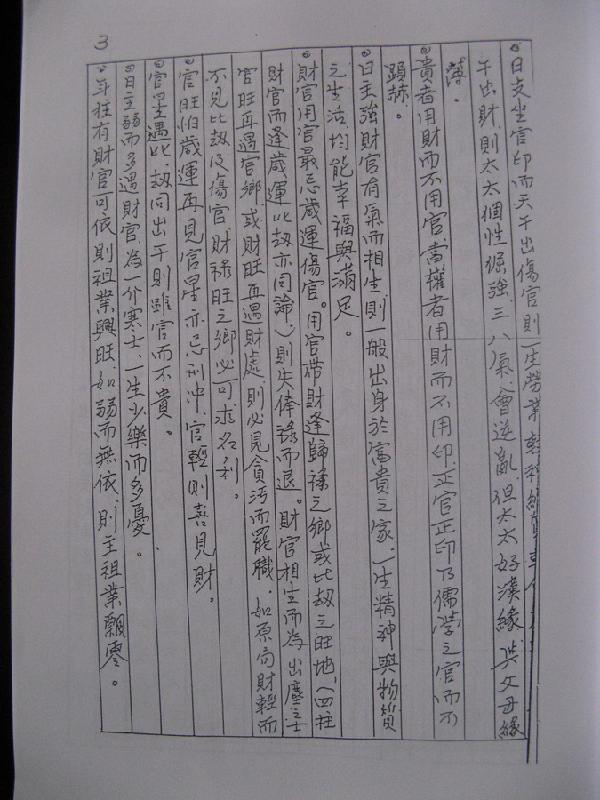 3
。日支坐官印而天干出傷官則一生勞業
干出財、則太太個性倔強、三八氣、會逆亂、但太太好漢緣、與父母緣
薄。
。貴者用財而不用官、當權者用財而不用印、正官正印乃儒學之官而不
顯赫。
。日主強財官有氣而相生則一般出身於富貴之家、一生精神與物質
之生活均能幸福與滿足。
。財官用官最忌歲運傷官。用官帶財逢歸祿之鄉或比劫之旺地、(四柱
財官而逢歲運比劫亦同論、)則失俸祿而退。財官相生而為出塵之士
官旺再遇官鄉、或財旺再遇財處、則必見貪污而罷職、如原局財輕而
不見比劫及傷官財祿旺之鄉必可求名利。
。官旺怕歲運再見官星亦忌刑冲、官輕則喜見財。
。官星遇比、劫同出干則雖官而不貴。
。日主弱而多遇財官、為一介寒士、一生少樂而多憂。
。年柱有財官可依則祖業興旺、如弱而無依、則主祖業飄零。